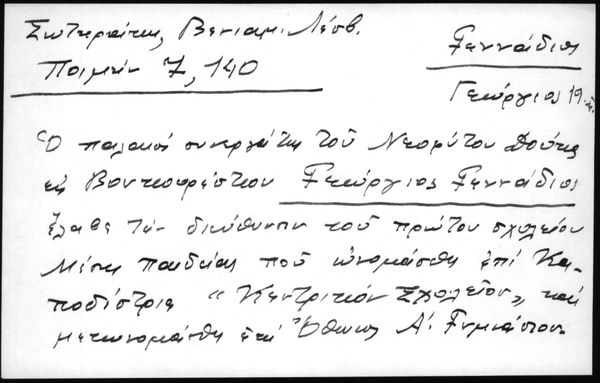 Σωτηράκης, Βενιαμ. Λέσβ.
Ποιμήν 7, 140
Γεννάδιος
Γεώργιος 19
Ὁ παλαιός συνεργάτης τοῦ Νεοφύτου Δούκα
εἰς Βουκουρέστιον Γεώργιος Γεννάδιος
ἔλαβε τὴν διεύθυνσιν τοῦ πρώτου σχολείου
Μέσης παιδείας ποῦ ὠνομάσθη ἐπί Κα-
ποδίστρια "Κεντρικόν Σχολεῖον„ καί
μετωνομάσθη ἐπί Ὄθωνος Α! Γυμνάσιον.